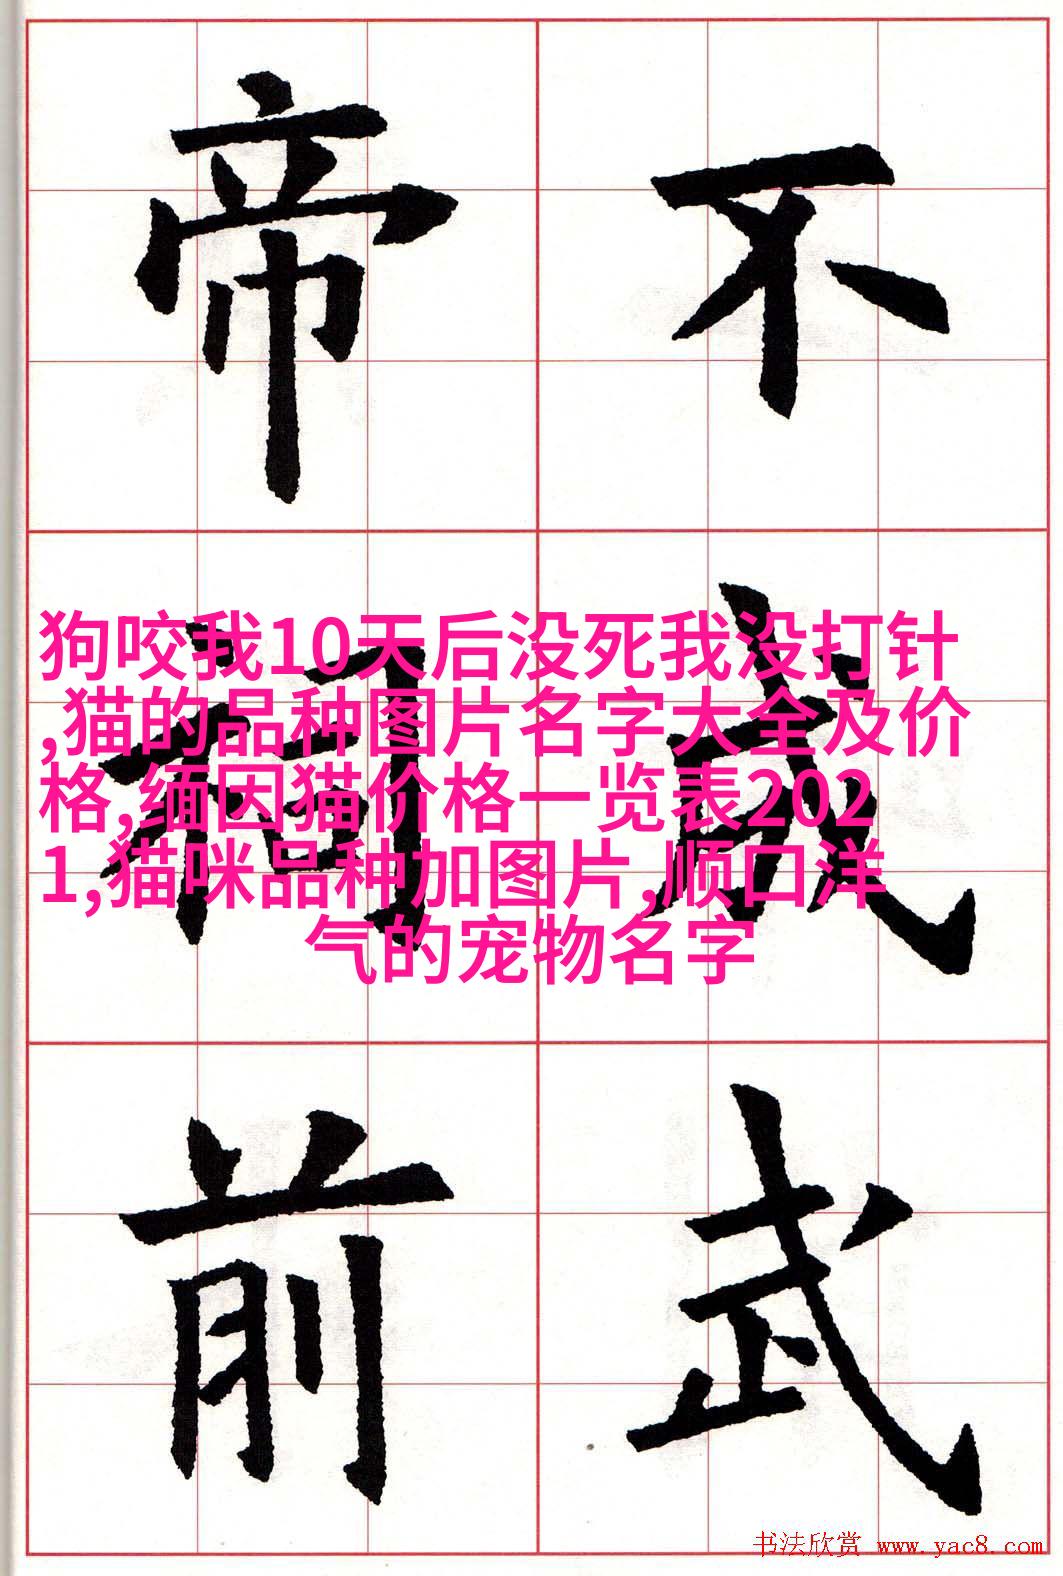 帝 不
狗咬我10天后没死我没打针
,猫的品种图片名字大全及价
格,缅因猫价格一览表202
1,猫咪品种加图片,顺口洋
气的宠物名字
前 武
书法欣赏 www.yac8.com